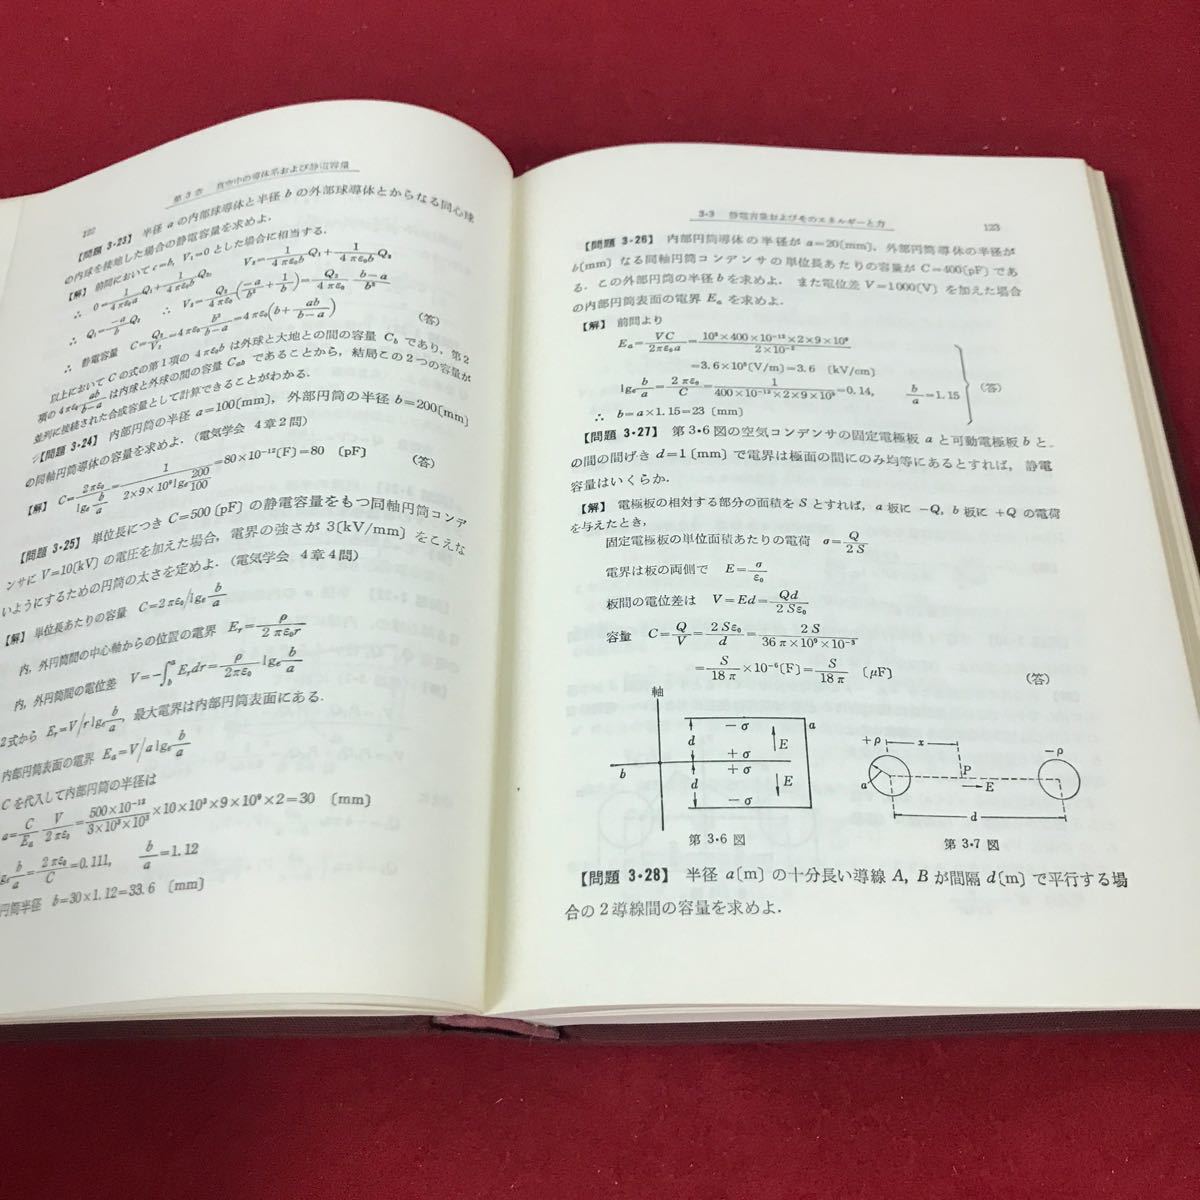 122
第3章 真空中の導体系および静電容量
【問題 3・23】 半径 a の内部球導体と半径 b の外部球導体とからなる同心球
の内球を接地した場合の静電容量を求めよ.
【解】 前問において c=b, V₁=0 とした場合に相当する.
∴ 0=1/4πε₀a Q₁+1/4πε₀b Q₂, V₂=1/4πε₀b Q₁+1/4πε₀b Q₂
∴ Q₁=-a/b Q₂ ∴ V₂=Q₂/4πε₀(-a/b²+1/b)=Q₂/4πε₀ b-a/b²
∴ 静電容量 C=Q₂/V₂=4πε₀ b²/b-a=4πε₀(b+ab/b-a) (答)
以上において C の式の第1項の 4πε₀b は外球と大地との間の容量 C_b であり, 第2
項の 4πε₀ ab/b-a は内球と外球の間の容量 C_ab であることから, 結局この2つの容量が
並列に接続された合成容量として計算できることがわかる.
【問題 3・24】 内部円筒の半径 a=100[mm], 外部円筒の半径 b=200[mm]
の同軸円筒導体の容量を求めよ. (電気学会 4章2問)
【解】 C=2πε₀/lgₑ b/a=1/2×9×10⁹lgₑ 200/100=80×10⁻¹²[F]=80 [pF] (答)
【問題 3・25】 単位長につき C=500[pF] の静電容量をもつ同軸円筒コンデ
ンサに V=10[kV] の電圧を加えた場合, 電界の強さが 3[kV/mm] をこえな
いようにするための円筒の太さを定めよ. (電気学会 4章4問)
【解】 単位長あたりの容量 C=2πε₀/lgₑ b/a
内, 外円筒間の中心軸からの位置の電界 Eᵣ=ρ/2πε₀r
内, 外円筒間の電位差 V=-∫ᵇᵃEᵣdr=ρ/2πε₀ lgₑ b/a
2式から Eᵣ=V/r lgₑ b/a, 最大電界は内部円筒表面にある.
内部円筒表面の電界 Eₐ=V/a lgₑ b/a
C を代入して内部円筒の半径は
a=C/Eₐ V/2πε₀=500×10⁻¹²/3×10³×10³×10×10³×9×10⁹×2=30 [mm]
gₑ b/a=2πε₀/C=0.111, b/a=1.12
円筒半径 b=30×1.12=33.6 [mm]
3-3 静電容量およびそのエネルギーと力
123
【問題 3・26】 内部円筒導体の半径が a=20[mm], 外部円筒導体の半径が
b[mm] なる同軸円筒コンデンサの単位長あたりの容量が C=400[pF] であ
る. この外部円筒の半径 b を求めよ. また電位差 V=1000[V] を加えた場合
の内部円筒表面の電界 Eₐ を求めよ.
【解】 前問より
Eₐ=VC/2πε₀a=10³×400×10⁻¹²×2×9×10⁹/2×10⁻²
=3.6×10⁵[V/m]=3.6 [kV/cm]
lgₑ b/a=2πε₀/C=1/400×10⁻¹²×2×9×10⁹=0.14, b/a=1.15 (答)
∴ b=a×1.15=23 [mm]
【問題 3・27】 第3・6図の空気コンデンサの固定電極板 a と可動電極板 b と
の間の間げき d=1[mm] で電界は極面の間にのみ均等にあるとすれば, 静電
容量はいくらか.
【解】 電極板の相対する部分の面積を S とすれば, a 板に -Q, b 板に +Q の電荷
を与えたとき,
固定電極板の単位面積あたりの電荷 σ=Q/2S
電界は板の両側で E=σ/ε₀
板間の電位差は V=Ed=Qd/2Sε₀
容量 C=Q/V=2Sε₀/d=2S/36π×10⁹×10⁻³
=S/18π×10⁻⁶[F]=S/18π [μF] (答)
軸
-σ
a
d
E
+σ
b
+σ
d
E
-σ
第3・6図
+ρ
x
-ρ
P
E
a
d
第3・7図
【問題 3・28】 半径 a[m] の十分長い導線 A, B が間隔 d[m] で平行する場
合の2導線間の容量を求めよ.